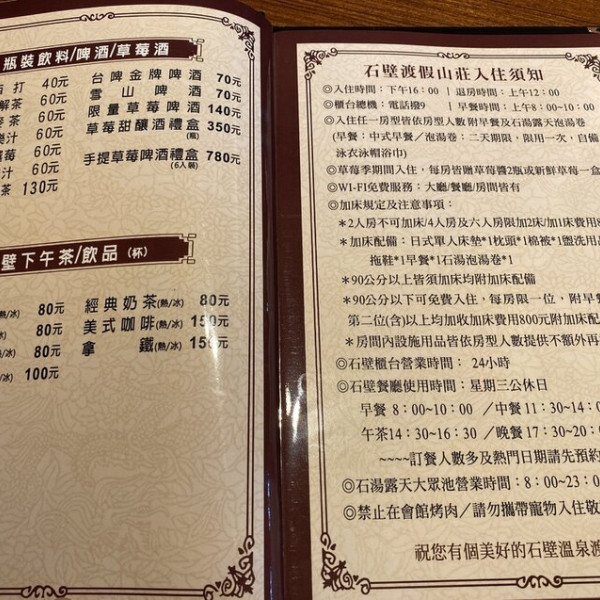 瓶裝飲料/啤酒/草莓酒
打 40元
解茶 60元
茶 60元
汁 60元
莓 60元
汁 60元
茶 130元
台啤金牌啤酒 70元
雪山啤酒 70元
限量草莓啤酒 140元
草莓甜釀酒禮盒(瓶) 350元
手提草莓啤酒禮盒(6人裝) 780元
壁下午茶/飲品(杯)
(熱/冰) 80元
/冰) 80元
/冰) 80元
/冰) 100元
經典奶茶(熱/冰) 80元
美式咖啡(熱/冰) 150元
拿鐵(熱/冰) 150元
石壁渡假山莊入住須知
◎入住時間：下午16：00 | 退房時間：上午12：00
◎櫃台總機：電話撥9 | 早餐時間：上午8：00~10：00
◎入住任一房型皆依房型人數附早餐及石湯露天泡湯卷
(早餐：中式早餐／泡湯卷：二天期限，限用一次，自備
泳衣泳帽浴巾)
◎草莓季期間入住，每房皆贈草莓醬2瓶或新鮮草莓一盒
◎WI-FI免費服務：大廳/餐廳/房間皆有
◎加床規定及注意事項：
＊2人房不可加床/4人房及六人房限加2床/加1床費用8
＊加床配備：日式單人床墊*1枕頭*1棉被*1盥洗用品
拖鞋*1早餐*1石湯泡湯卷*1
＊90公分以上皆須加床均附加床配備
＊90公分以下可免費入住，每房限一位，附早餐
第二位(含)以上均加收加床費用800元附加床配
＊房間內設施用品皆依房型人數提供不額外再
◎石壁櫃台營業時間： 24小時
◎石壁餐廳使用時間：星期三公休日
早餐 8：00~10：00 ／中餐 11：30~14：0
午茶14：30~16：30 ／晚餐 17：30~20：0
~~~~訂餐人數多及熱門日期請先預約
◎石湯露天大眾池營業時間：8：00~23：0
◎禁止在會館烤肉／請勿攜帶寵物入住敬
祝您有個美好的石壁溫泉渡